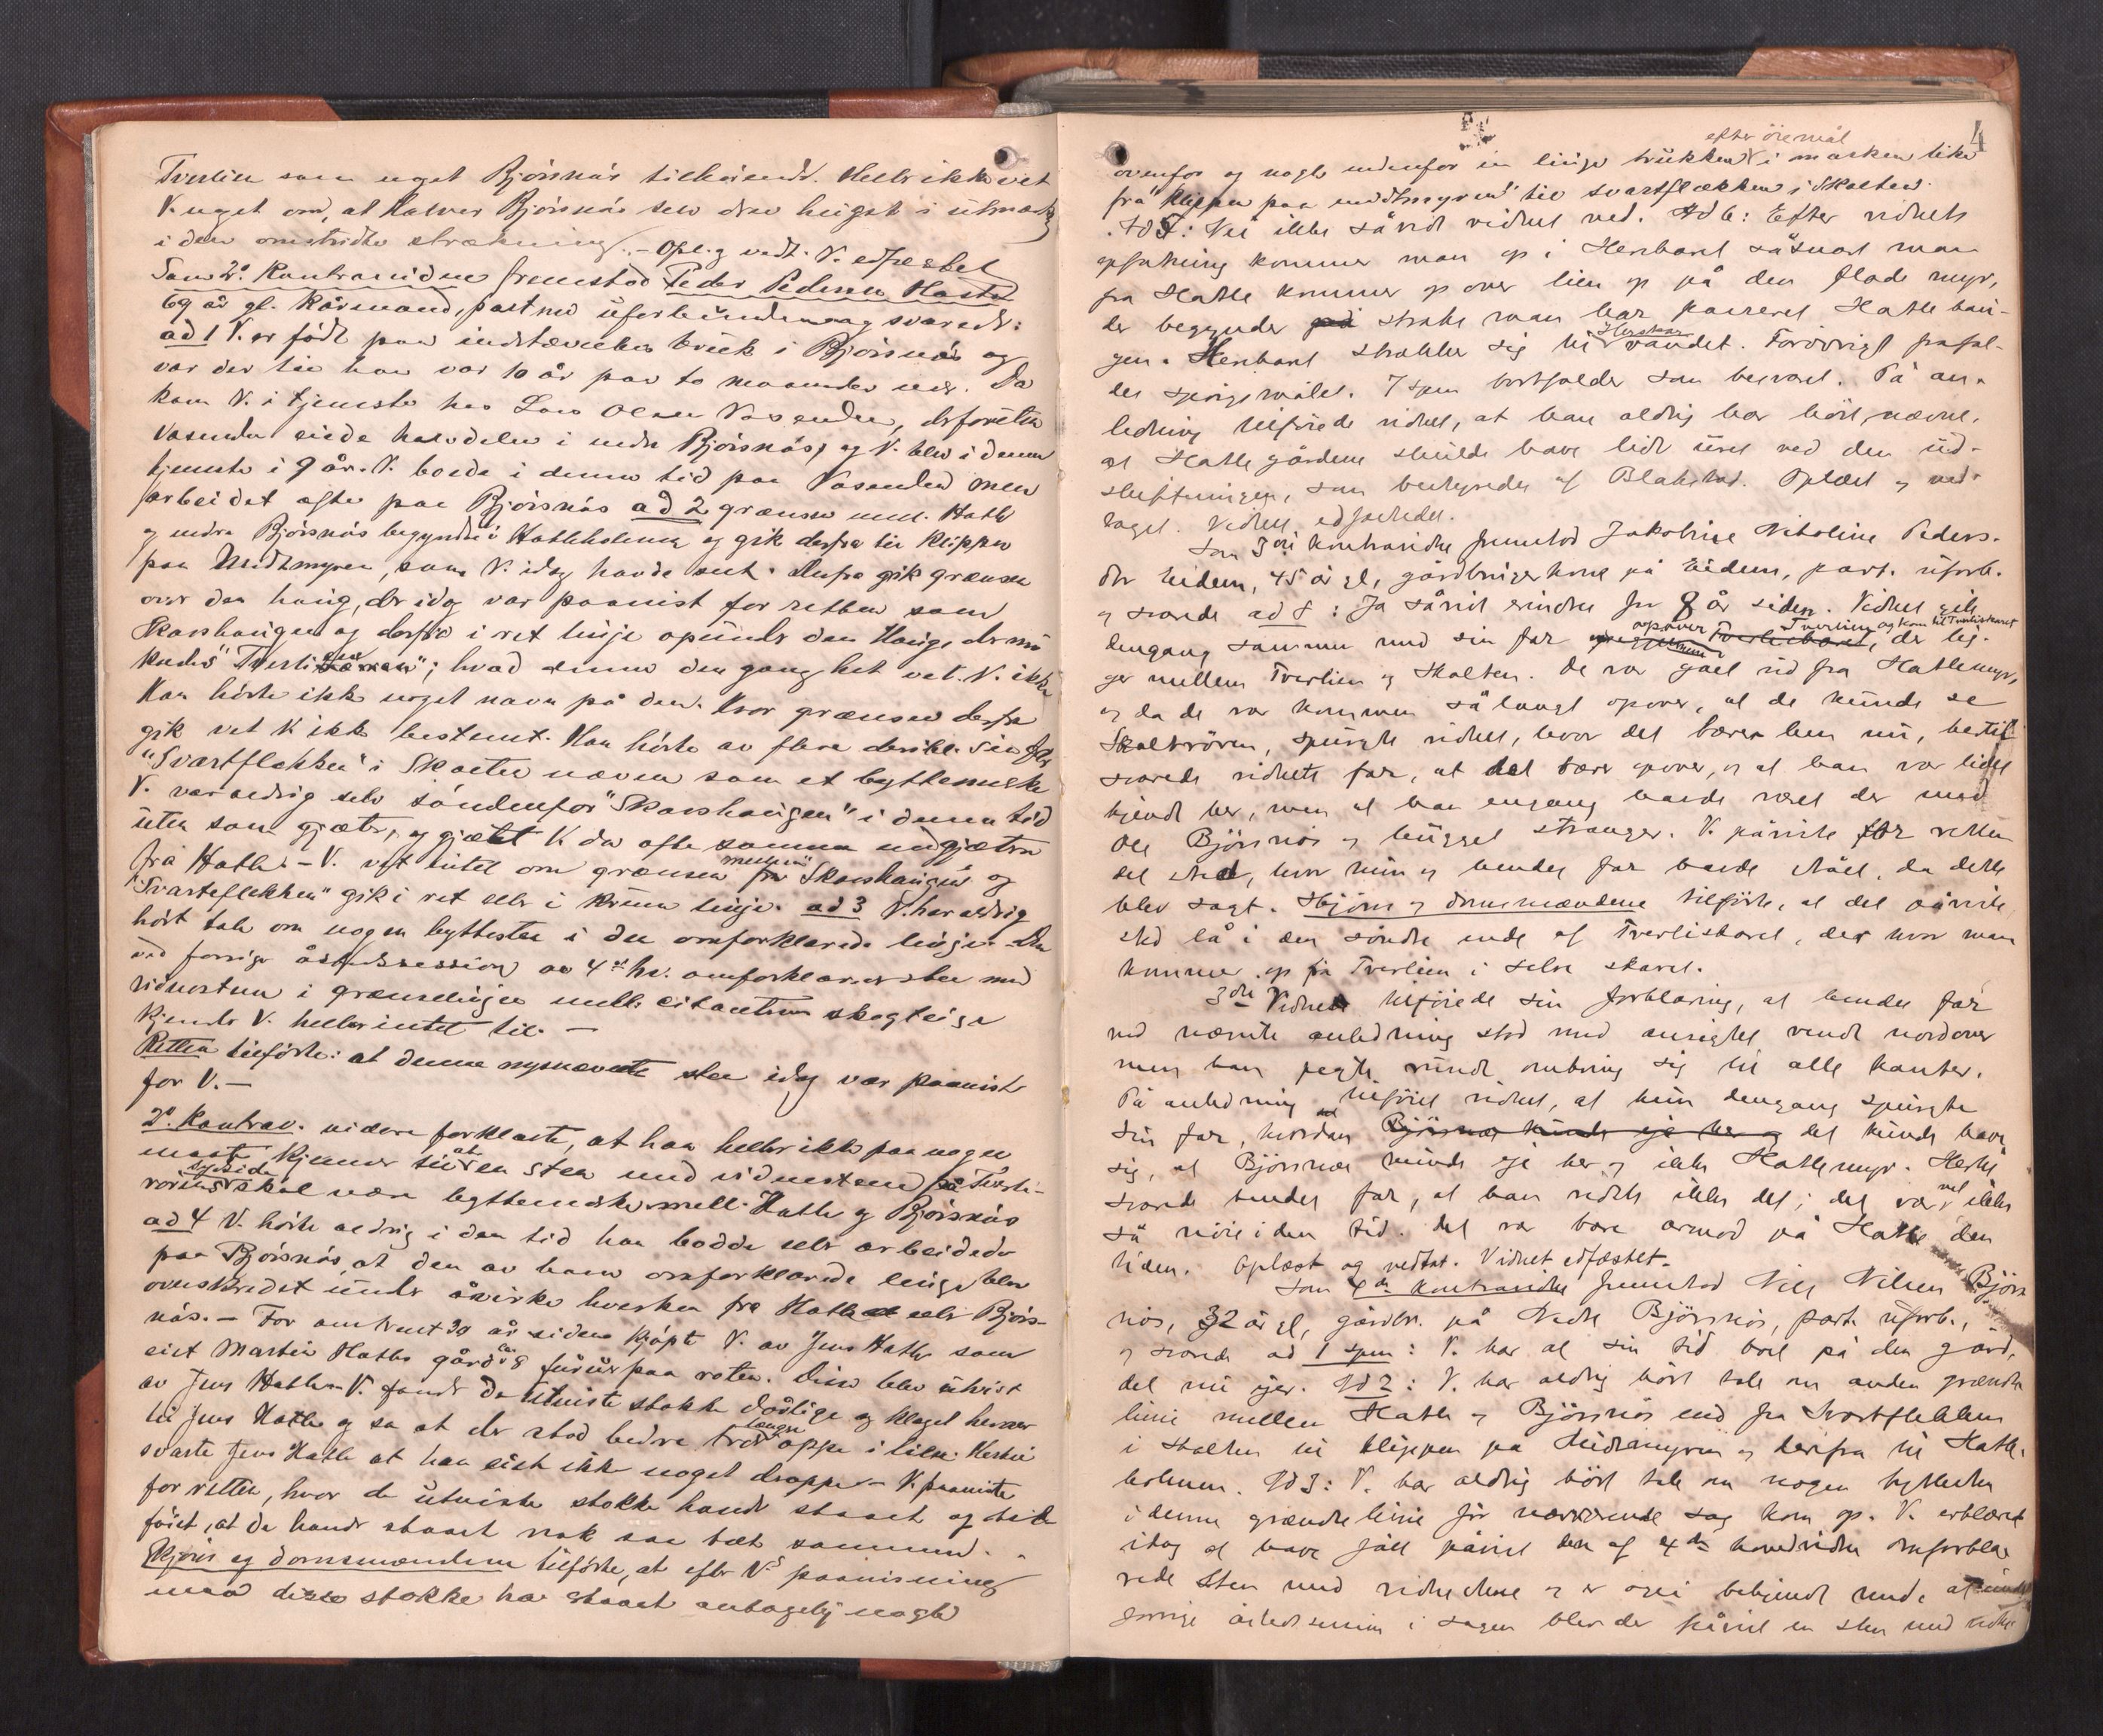 Tverlien som noget Björsnäs tilhörende. Heller ikke vet
V. noget om, at Halvor Björsnäs selv drev hugst i utmark
i den omstridte strækning. – Opl. og vedt. V. edfæstet
Som 2° Kontravidne fremstod Peder Pedersen Hatle
69 år gl. kårmand, part. med uforbunden og svarede:
ad 1 V. er född paa indstævntes bruk i Björsnäs og
var der til han var 10 år paa to maaneder när. Da
kom V. i tjeneste hos Lars Olsen Vasenden,
Vasenden eiede halvdelen i nedre Björsnäs, og V. blev i denne
tjeneste i 9 år. V. boede i denne tid paa Vasenden men
arbeidet ofte paa Björsnäs ad 2 grænsen mell. Hatle
og nedre Björsnäs begyndte i Hatleholmen og gik derfra til Klippen
paa Midtmyren, som V. idag havde set. Derfra gik grænsen
over den haug, der idag var paavist for retten som
Skarshaugen og derfra i ret linje opunder den Haug, der nu
kaldes "Tverli "; hvad denne den gang het vet V. ikke
Han hörte ikke noget navn på den. Hvor grænsen derfra
gik vet V. ikke bestemt. Han hörte av flere
"Svartflekken" i Skaalten nævne som et byttemerke
V. var aldrig selv söndenfor "Skarshaugen" i denne tid
uten som gjæter, og gjætet V. da ofte sammen med gjætere
frå Hatle. – V. vet intet om grænsen mellem Skarshaugen og
"Svarteflekken" gik i ret eller i krum linje. ad 3 V. har aldrig
hört tale om nogen byttesten i den omforklarede linje. Den
ved forrige åstedssession av 4de hv. omforklarede sten med
vidnesten i grænselinjen mell. citantens skogteiger
kjender V. heller intet til. –
Retten tilförte: at denne nysnævnte sten idag var paavist
for V. –
2° Kontrav. videre forklarte, at han heller ikke paa nogen
maate kjenner til at en sten med vidnestene på Tverli-
rörens sydside skal være byttemerke mell. Hatle og Björsnäs
ad 4 V. hörte aldrig i den tid han bodde eller arbeidede
paa Björsnäs, at den av ham omforklarede linje blev
overskredet under åvirke hverken fra Hatle eller Björs-
näs. – For omtrent 30 år siden kjöpte V. av Jens Hatle som
eiet Martin Hatles gård 8 furuer paa roten. Disse blev utvist
av Jens Hatle. V. fandt de utviste stokke dårlige og klaget herover
til Jens Hatle og sa at der stod bedre træ længre oppe i lien. Hertil
svarte Jens Hatle at han eiet ikke noget deroppe – V. paaviste
for retten, hvor de utviste stokke havde staaet og til-
föiet, at de havde staaet nok saa tæt sammen.
Skjöns og domsmændene tilförte, at efter V's paavisning
maa disse stokke ha staaet antagelig nogle
4
ovenfor og nogle nedenfor en linje trukken efter öiemål i marken like
frå klippen paa midtmyren til svartflekken i Skalten.
Ad 5: Nei ikke såvidt vidnet ved. Ad 6: Efter vidnets
opfatning kommer man op i Herskaret såsnart man
fra Hatle kommer op over lien op på den flade myr,
der begynder strakt man har passeret Hatle hau-
gen. Herskaret strækker sig til Herskar vandet. Forövrigt frafal-
des spörgsmålet. 7 spm bortfalder som besvaret. På an-
ledning tilföiede vidnet, at han aldrig har hört nævne,
at Hatle gårdene skulde have lidt uret ved den ud-
skiftningen, som bestyredes af Blakstad. Oplæst og ved-
taget. Vidnet edfæstedes.
Som 3die kontravidne fremstod Jakobine Nikoline Peders-
dtr Eidem, 45 år gl., gårdbrugerkone på Eidem, part. uforb.
og svarede ad 8: Ja såvidt erindres for 8 år siden. Vidnet gik
dengang sammen med sin far opover Tverlien og kom til Tverliskaret, der lig-
ger mellem Tverlien og Skalten. De var gået ud fra Hatlemyr,
og da de var kommen så langt opover, at de kunde se
Skaltrören, spurgte vidnet, hvor det bærer hen nu, hertil
svarede vidnets far, at det bær opover, og at han var lidt
kjendt her, men at han engang havde været der med
Ole Björsnös og hugget stranger. V. påviste for retten
det sted, hvor hun og hendes far havde stået, da dette
blev sagt. Skjöns og domsmændene tilförte, at det påviste
sted lå i den söndre ende af Tverliskaret, der hvor man
kommer op fra Tverlien i selve skaret.
3die Vidnet tilföiede sin forklaring, at hendes far
ved nævnte anledning stod med ansigtet vendt nordover
men han pegte rundt omkring sig til alle kanter.
På anledning tilföiet vidnet, at hun dengang spurgte
sin far, hvordan Björsnæs kunde eje her og det kunde have
sig, at Björsnæs kunde eje her og ikke Hatlemyr. Hertil
svarede hendes far, at han vidste ikke det; det var vel ikke
så nöie i den tid. det var bare armod på Hatle den
tiden. Oplæst og vedtat. Vidnet edfæstet.
Som 4de kontravidne fremstod Nils Nilsen Björs-
nös, 32 år gl., gårdbr. på Nedre Björsnös, part. uforb.,
og svarede ad 1 spm: V. har al sin tid boet på den gård,
det nu ejer. Ad 2: V. har aldrig hört tale om anden grændse
linie mellem Hatle og Björsnös end fra Svartflekken
i Skalten til klippen på Midtmyren og derfra til Hatle-
holmen. Ad 3: V. har aldrig hört tale om nogen byttesten
i denne grændselinie för nærværende sag kom op. V. erklæret
idag at have fået påvist den af 4de hovedvidne omforkla-
rede sten med vidnestene og er også bekjendt med, at under
forrige åstedssession i sagen blev der påvist en sten med vidne